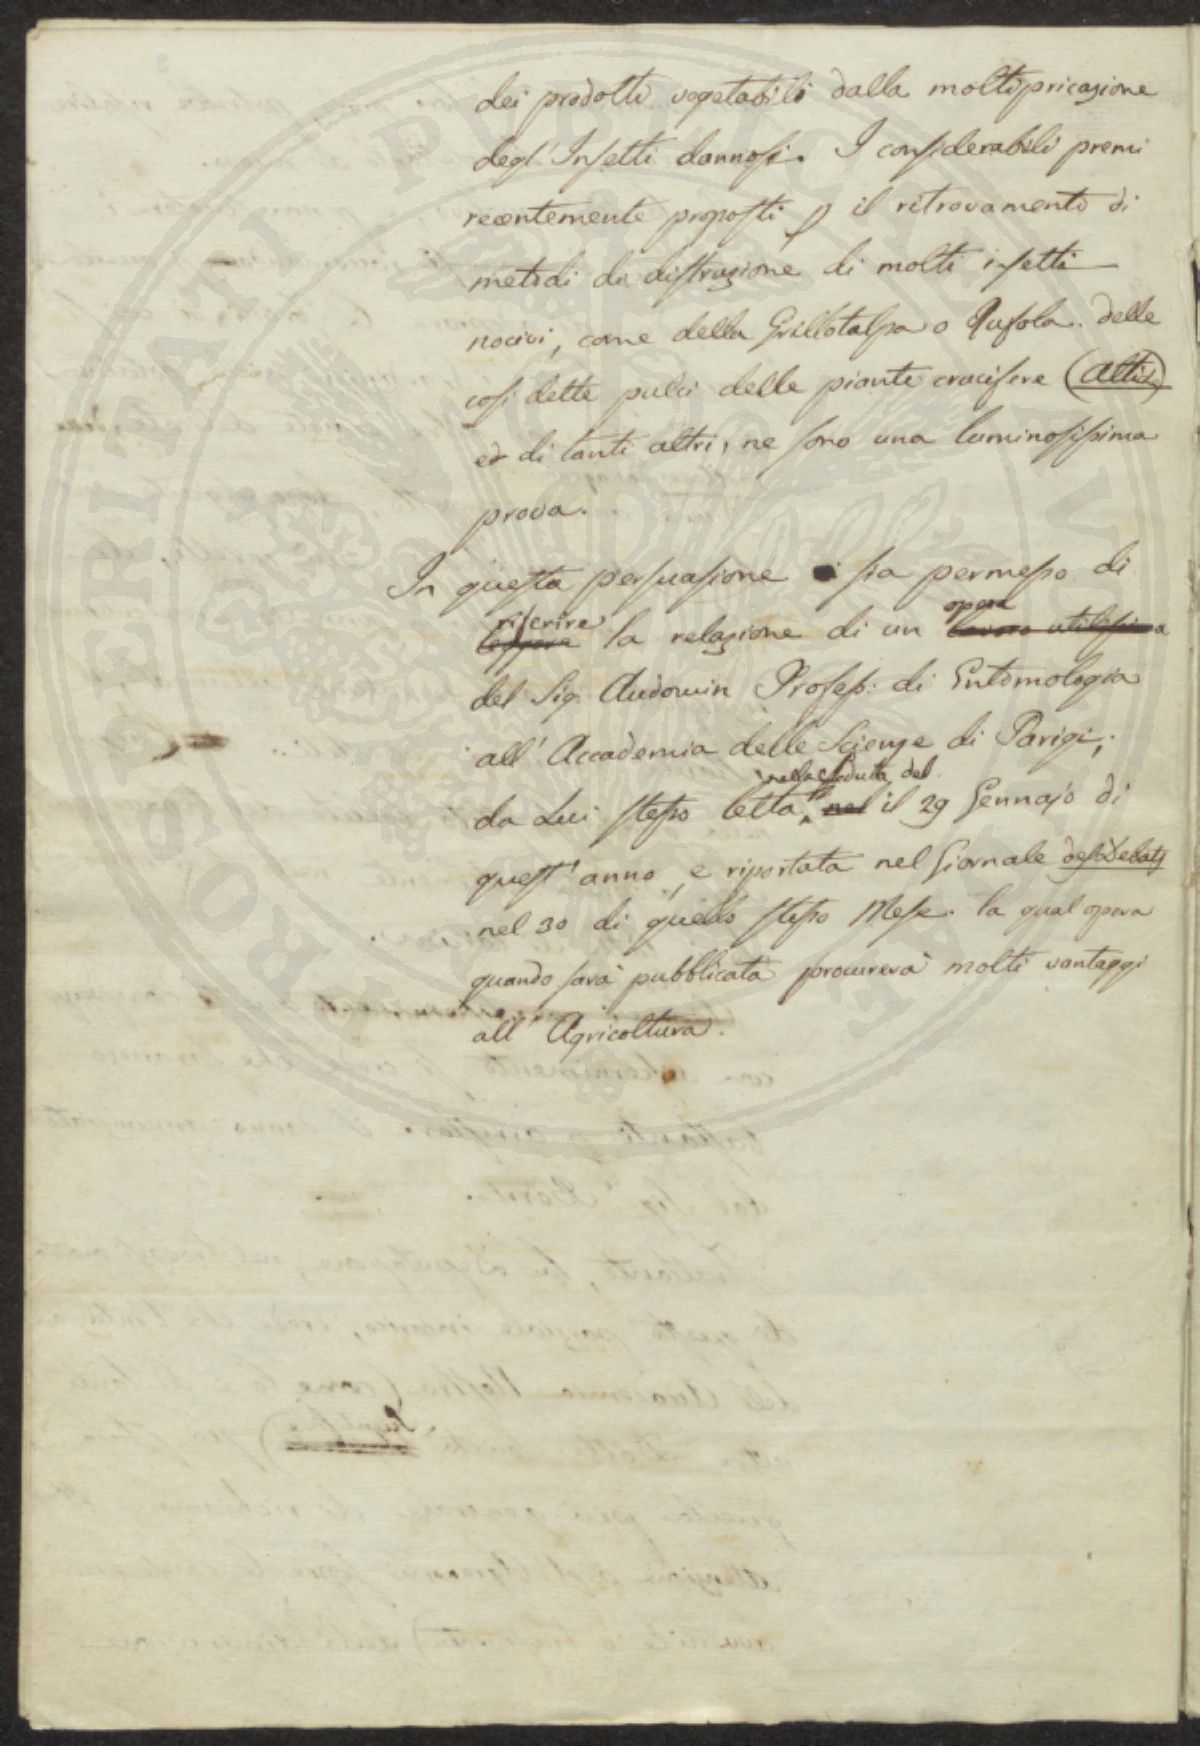 dei prodotti vegetabili dalla moltipricazione
degl' Insetti dannosi. I considerabili premi
recentemente proposti p il ritrovamento di
metodi di distruzione di molti insetti
nocivi, come della Grillotalpa o Rufola. delle
così dette pulci delle piante crucifere (altis)
ed di tanti altri, ne sono una luminosissima
prova.
In questa persuasione sia permesso di
riferire
leggere la relazione di un opera lavoro utilissimo
del Sig. Audouin Profess: di Entomologia
all' Accademia delle Scienze di Parigi,
nella seduta del
da Lui stesso letta, nel il 29 Gennajo di
quest' anno, e riportata nel Giornale des Debats
nel 30 di quello stesso Mese. la qual opera
quando sarà pubblicata procurerà molti vantaggi
all' Agricoltura.